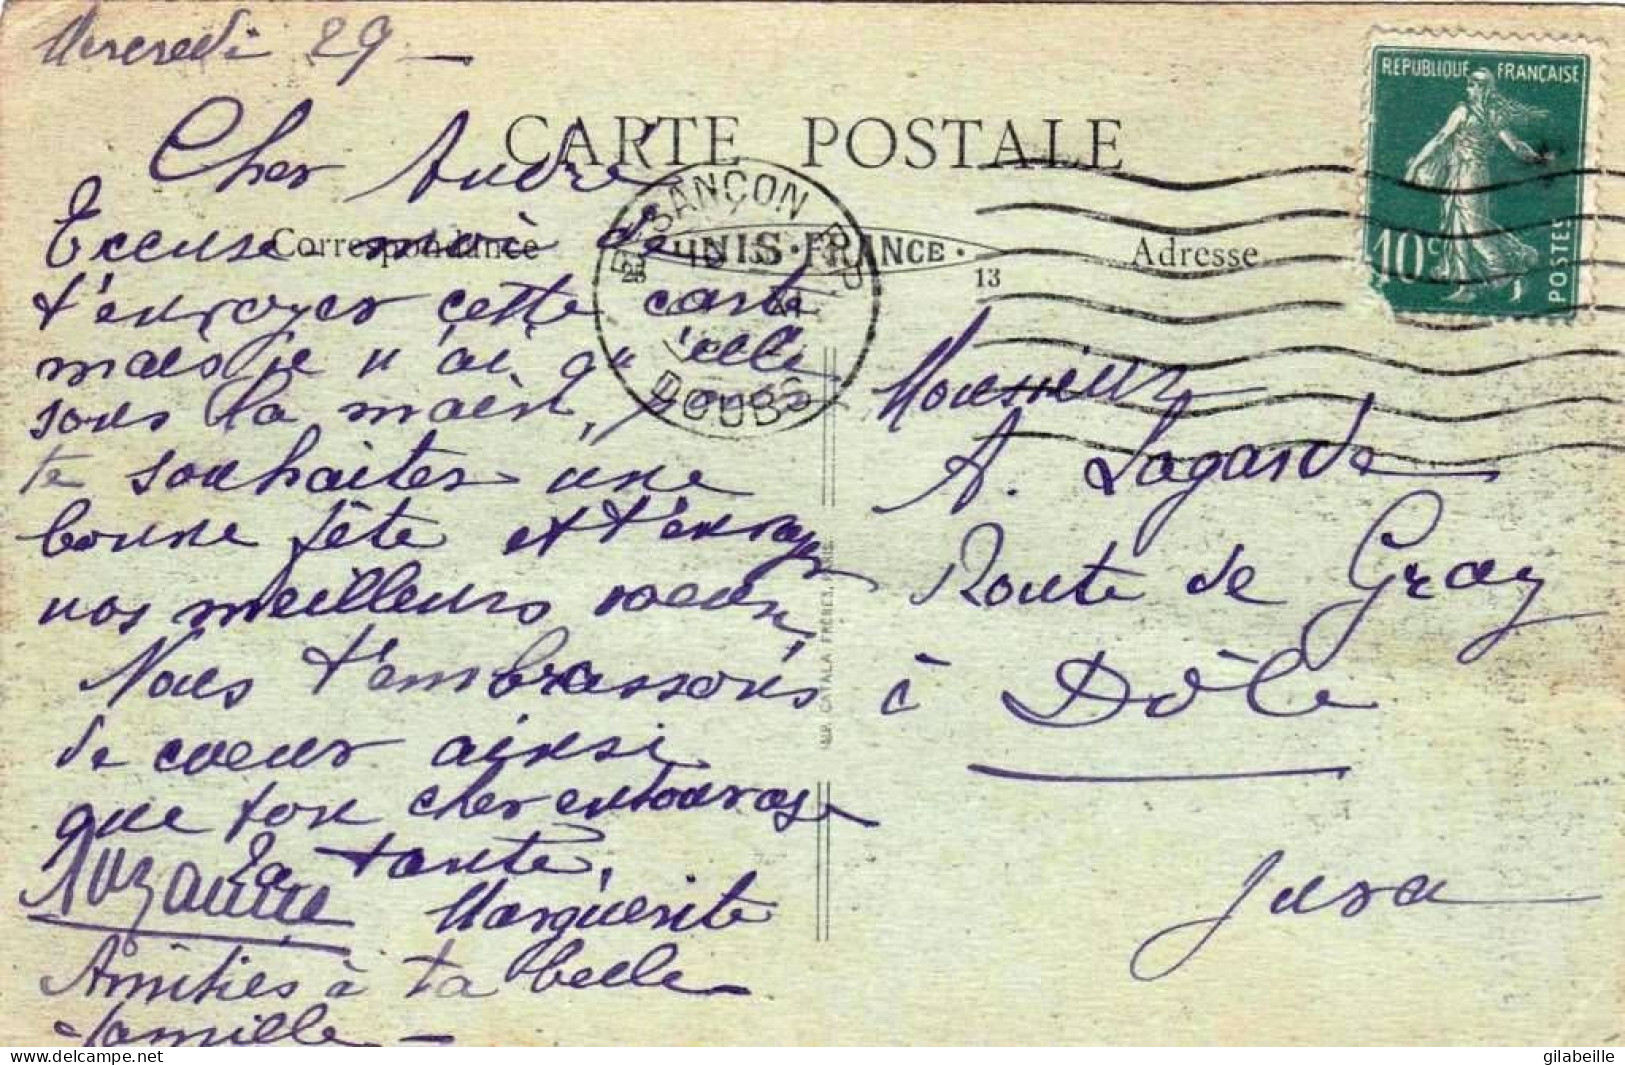 Mercredi 29 -
CARTE POSTALE
REPUBLIQUE FRANÇAISE
10c
POSTES
BESANÇON R.P.
DOUBS
Correspondance
UNIS-FRANCE
Adresse
13
Cher André
Excuse moi de
t'envoyer cette carte
mais je n'ai qu'elle
sous la main, pour
te souhaiter une
bonne fête et t'envoyer
nos meilleurs vœux,
Nous t'embrassons
de cœur ainsi
que ton cher entourage
Ta tante,
Suzanne Marguerite
Amitiés à ta belle
famille -
Monsieur
A. Lagarde
Route de Gray
à Dôle
Jura
IMP. CATALA FRÈRES, PARIS
delcampe.net
gilabeille